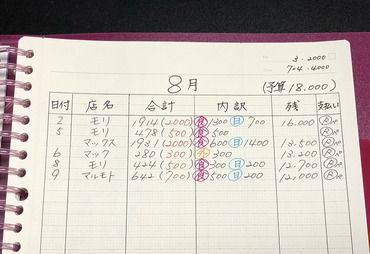 3.2000
704.4000
8月 (予算18.000)
日付 店名 合計 内訳 残 支払い
2 モリ 1914(2000) 食1300 日700 16.000
5 モリ 478(500) 食500
マックス 1931(2000) 食600 日1400 13.500
6 マック 280(300) 300 13.200
8 モリ 424(500) 食300 日200 12.700
9 マルモト 642(700) 食500 日200 12,000